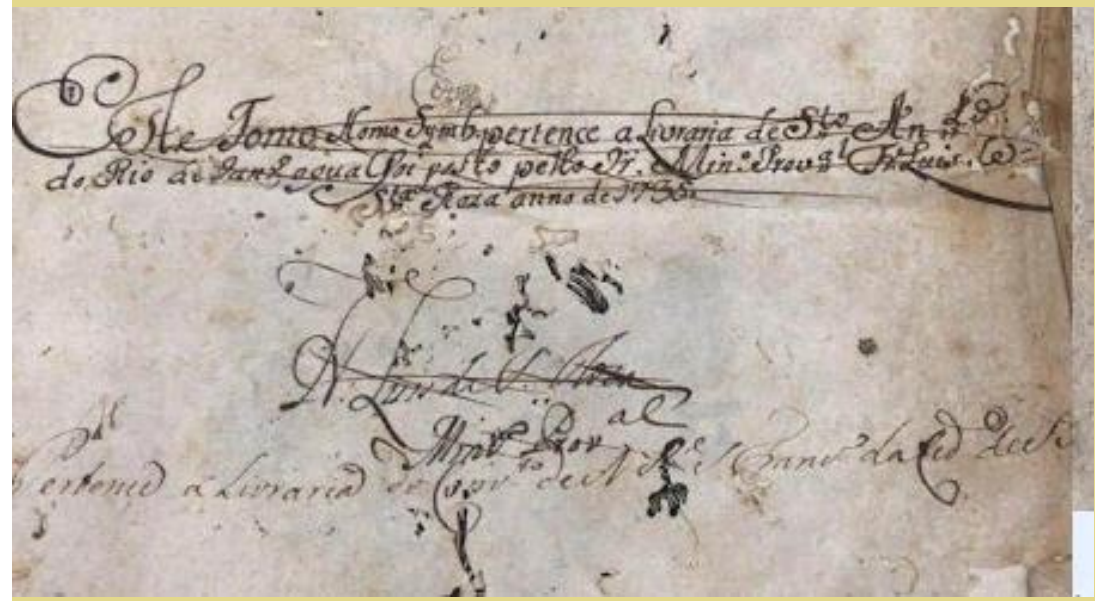 Este Tomo Homo Symb. pertence a Livraria de S.to An.to
do Rio de Jan.ro a qual foi posto pello Ir. Min.o Prov.al Fr. Luis. de
S.ta Roza anno de 1736.
Fr. Luis de S.ta Roza
Min.ro Prov.al
Pertence a Livraria do Conv.to de S. Fran.co da